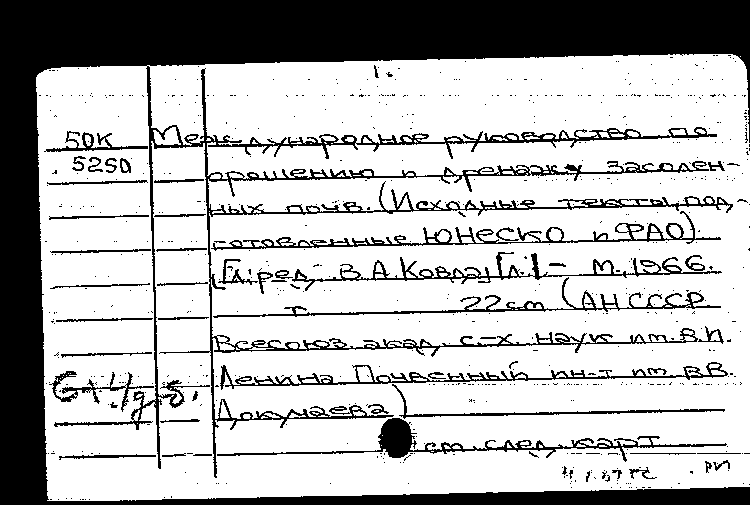 1.
50К Международное руководство по
5250 орошению и дренажу засолен-
ных почв. (Исходные тексты, под-
готовленные ЮНЕСКО и ФАО)
[Гл. ред. В.А. Ковда] - М., 1966.
т. 22 cm (АН СССР
Всесоюз. акад. с.-х. наук им. В.И.
Ленина Почвенный ин-т им. В.В.
Докучаева)
см. след. карт